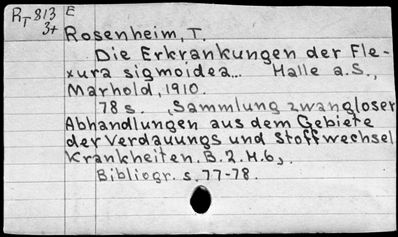 RT 813 E
3+
Rosenheim, T.
Die Erkrankungen der Fle-
xura sigmoidea... Halle a.S.,
Marhold, 1910.
78 s. (Sammlung zwangloser
Abhandlungen aus dem Gebiete
der Verdauungs und Stoffwechsel
Krankheiten. B.2. H.6).
Bibliogr. s. 77-78.